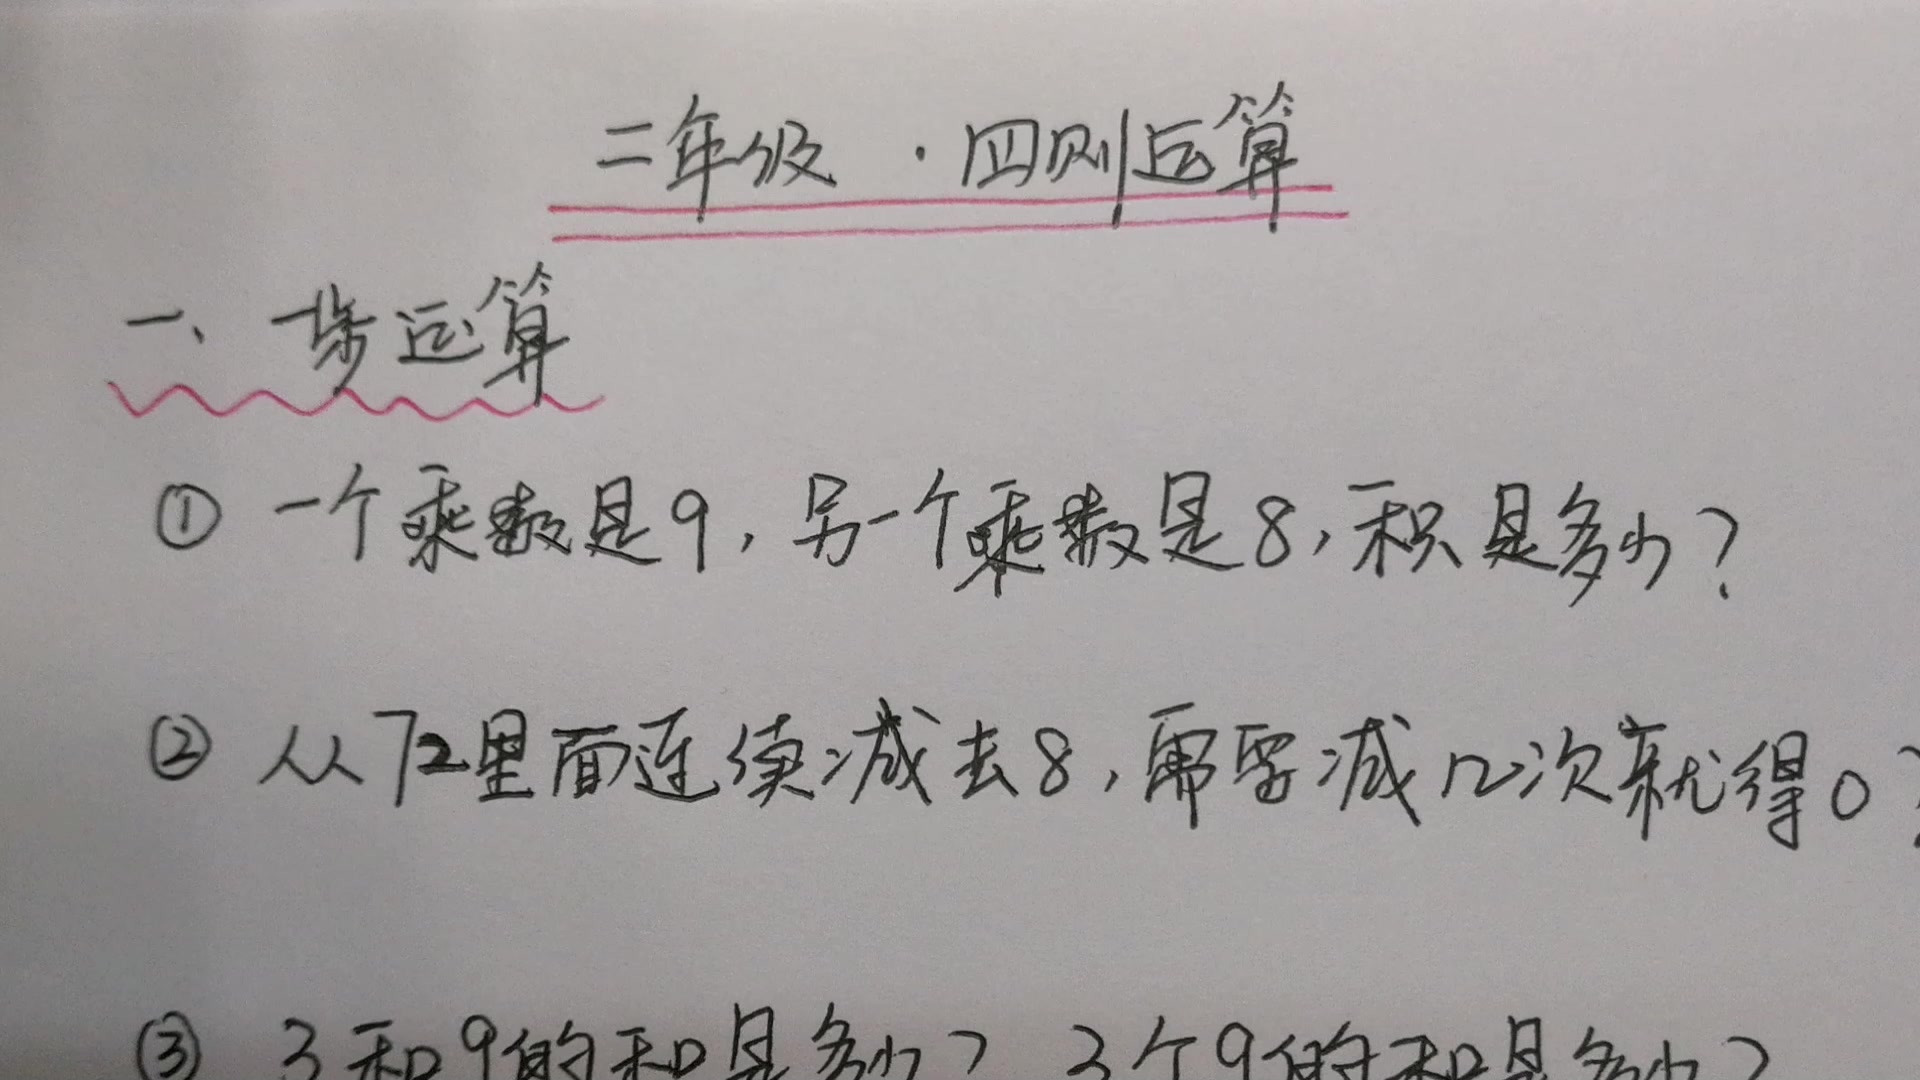 二年级·四则运算
一、一步运算
① 一个乘数是9,另一个乘数是8,积是多少?
② 从72里面连续减去8,需要减几次就得0?
③ 3和9的和是多少? 3个9的和是多少?